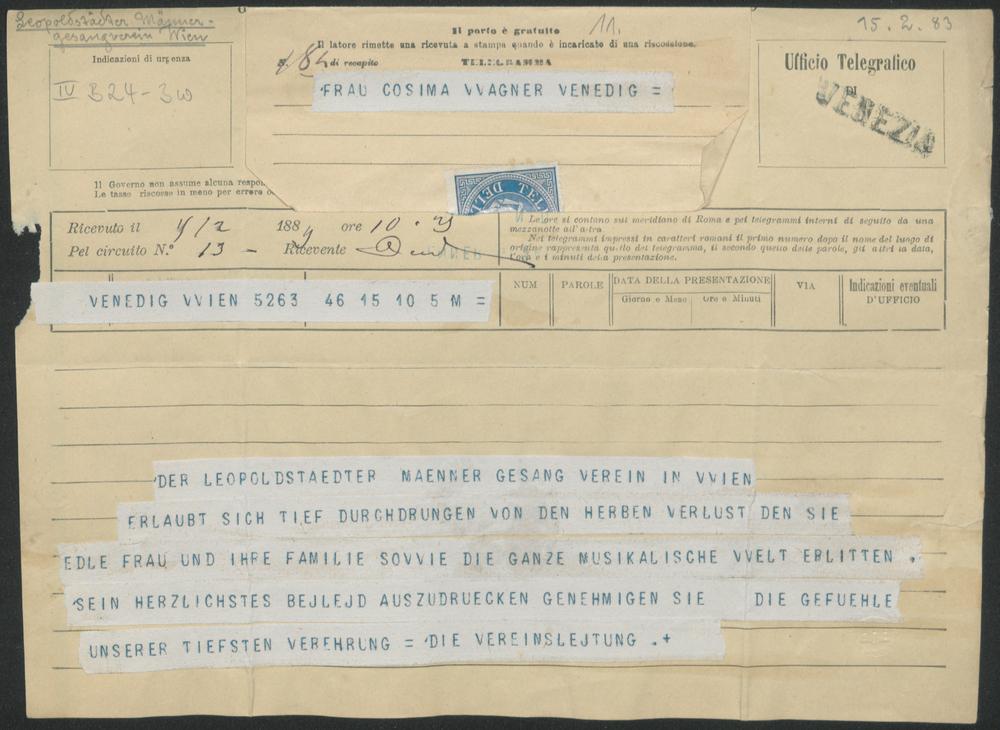 Leopoldstädter Männer-
gesangverein Wien
11.
15. 2. 83
Il porto è gratuito
Il latore rimette una ricevuta a stampa quando è incaricato di una riscossione.
di recapito TELEGRAMMA
Indicazioni di urgenza
IV B24-3w
Ufficio Telegrafico
DI
VENEZIA
FRAU COSIMA VVAGNER VENEDIG =
Il Governo non assume alcuna respon
Le tasse riscosse in meno per errore o
Ricevuto il /2 188 ore 10.
Pel circuito N.º 13 - Ricevente
Le ore si contano sul meridiano di Roma e pei telegrammi interni di seguito da una
mezzanotte all'altra.
Nei telegrammi impressi in caratteri romani il primo numero dopo il nome del luogo di
origine rappresenta quello del telegramma, il secondo quello delle parole, gli altri la data,
l'ora e i minuti della presentazione.
VENEDIG VVIEN 5263 46 15 10 5 M =
NUM PAROLE DATA DELLA PRESENTAZIONE VIA Indicazioni eventuali
Giorno e Mese Ore e Minuti D'UFFICIO
'DER LEOPOLDSTAEDTER MAENNER GESANG VEREIN IN VVIEN
ERLAUBT SICH TIEF DURCHDRUNGEN VON DEN HERBEN VERLUST DEN SIE
EDLE FRAU UND IHRE FAMILIE SOVVIE DIE GANZE MUSIKALISCHE VVELT ERLITTEN .
'SEIN HERZLICHSTES BEJLEJD AUSZUDRUECKEN GENEHMIGEN SIE DIE GEFUEHLE
UNSERER TIEFSTEN VEREHRUNG = 'DIE VEREINSLEJTUNG .+